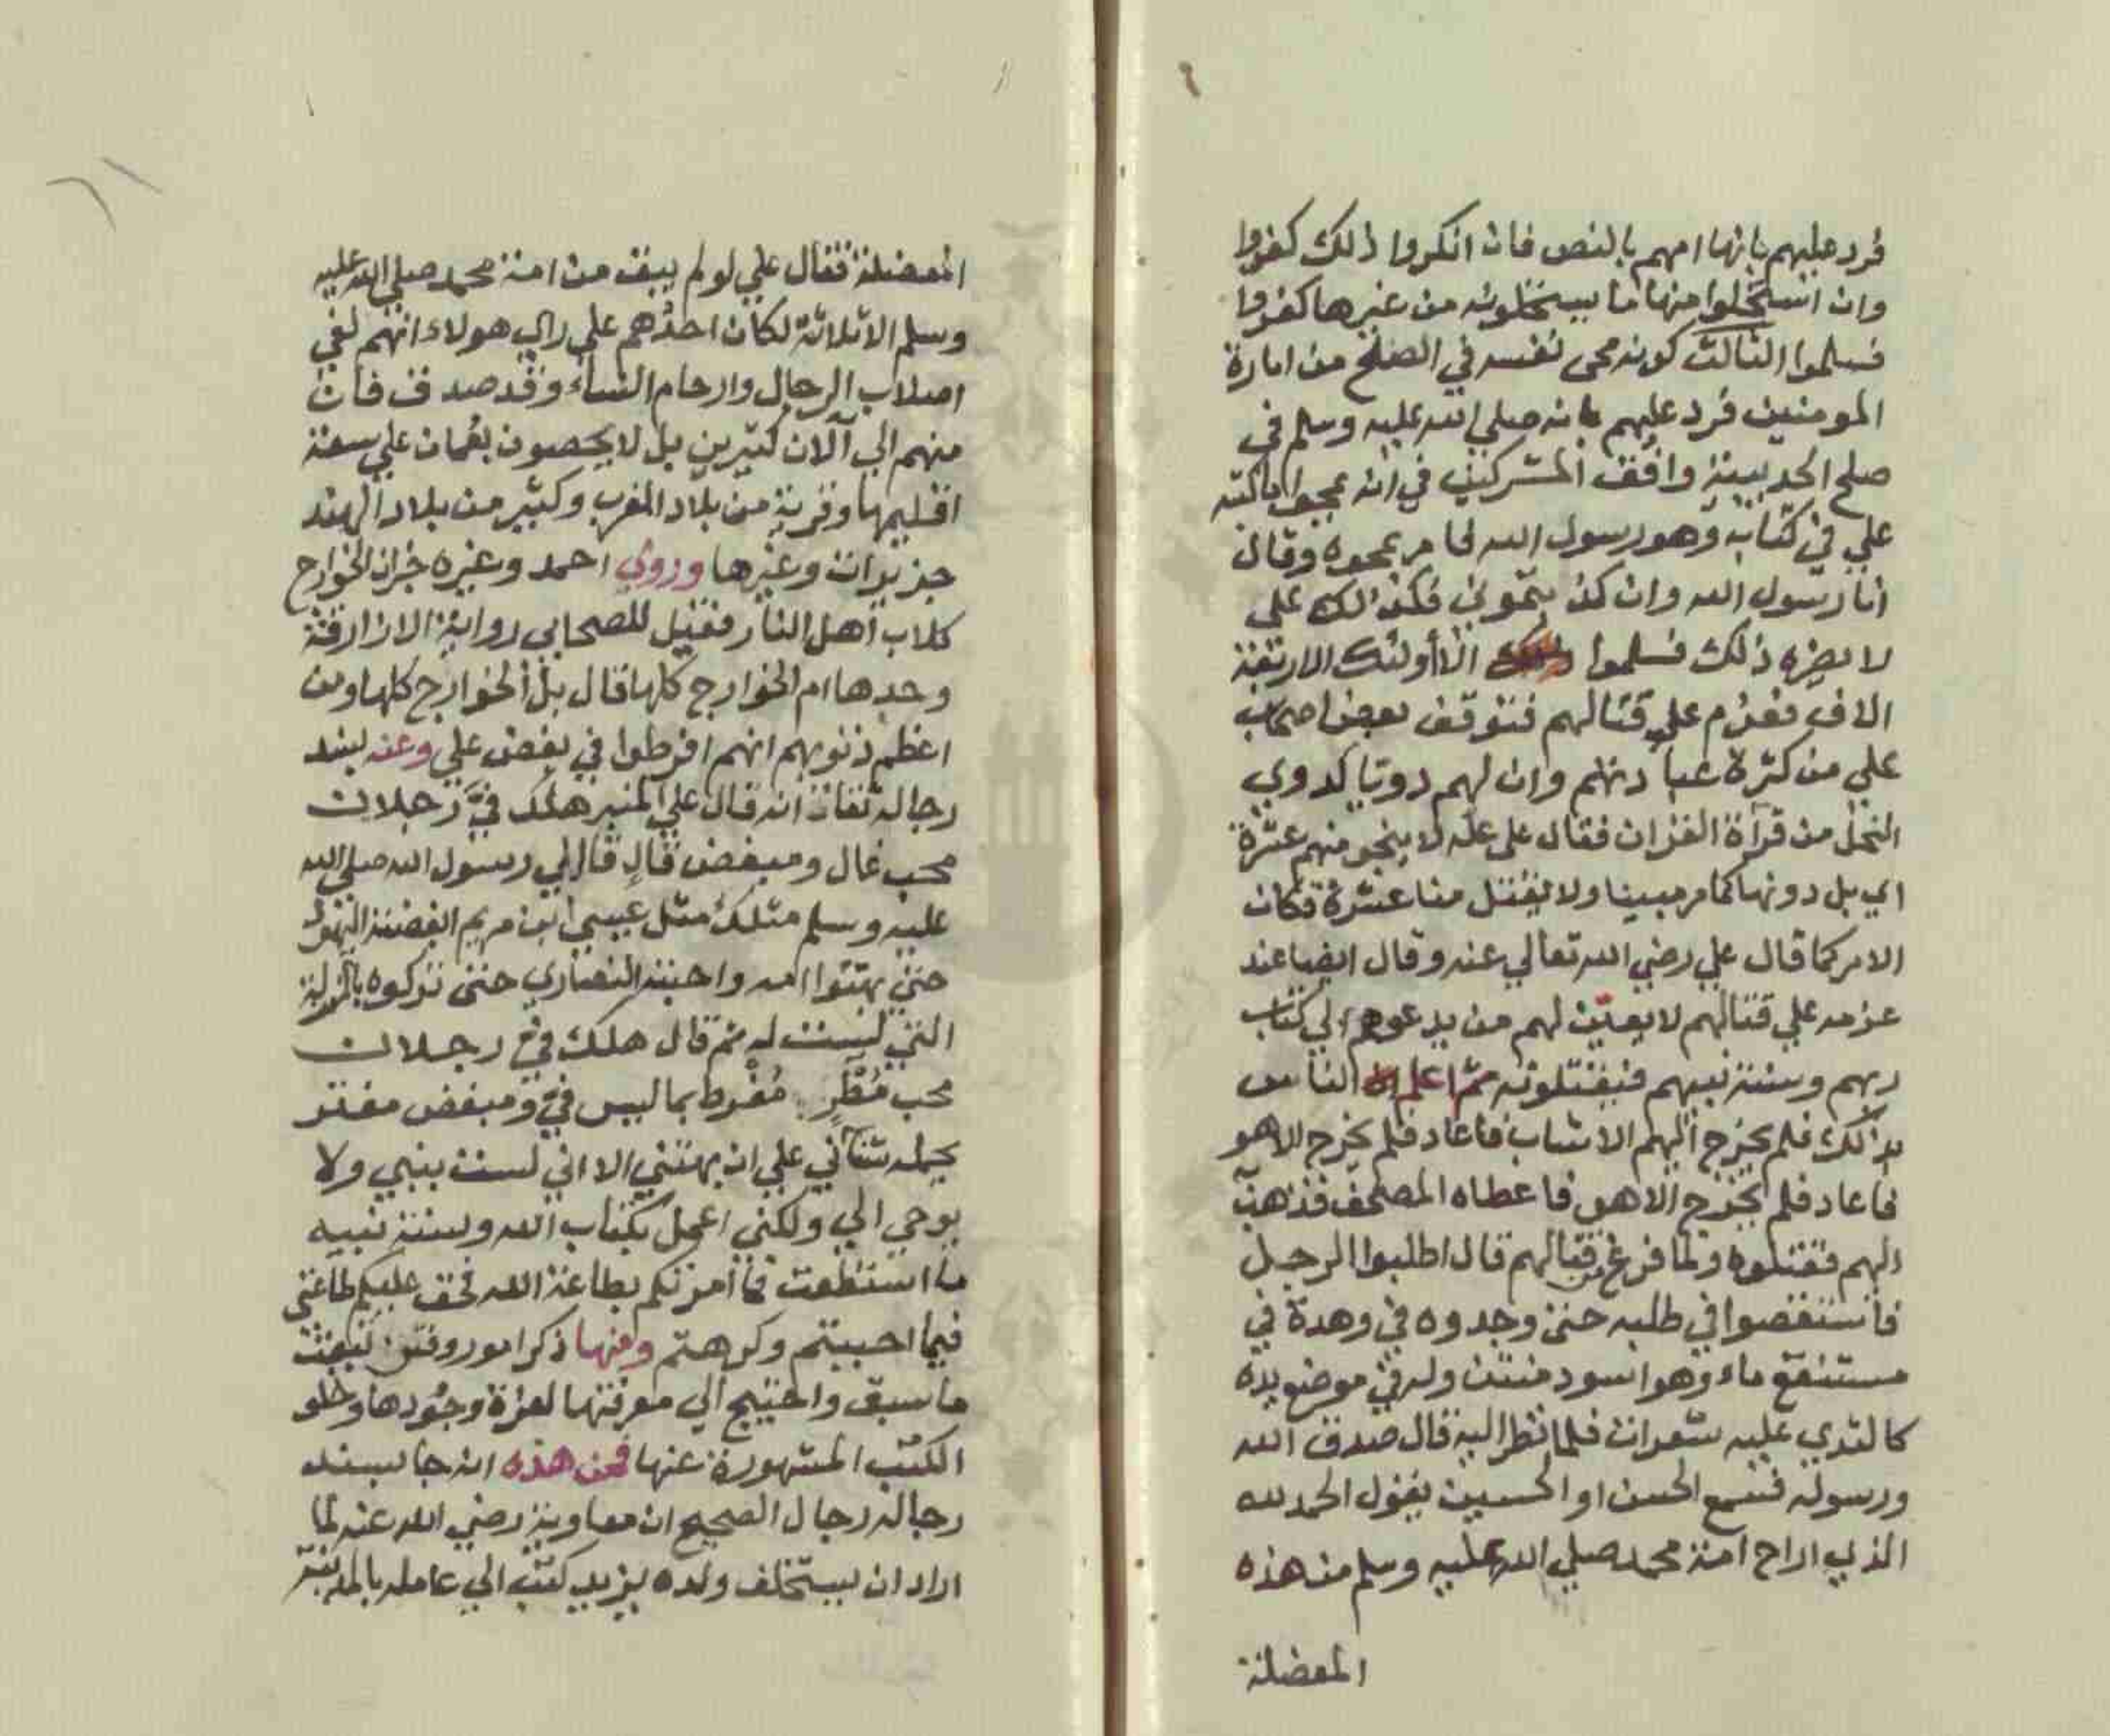 فرد عليهم بانها امهم بالنص فان انكروا ذلك كفروا
وان استحلوا منها ما يستحلونه من غيرها كفروا
فسلموا الثالث كونه محى نفسه في الصلح من امارة
المومنين فرد عليهم بانه صلي الله عليه وسلم في
صلح الحديبية وافق المشركين في انه يمحوا ما كتبه
علي في كتابه وهو رسول الله لما مر بمحوه وقال
انا رسول الله وان كذبتموني فكذلك علي
لا يضره ذلك فسلموا الا أولئك الاربعة
الاف فعزم علي قتالهم فتوقف بعض اصحاب
علي من كثرة عبادتهم وان لهم دويا كدوي
النحل من قرآة القران فقال علي لا ينجو منهم عشرة
اي بل دونها كما مر مبينا ولا يقتل منا عشرة فكان
الامر كما قال علي رضي الله تعالي عنه وقال ايضا عند
عزمه علي قتالهم لا يعين لهم من يدعوهم الي كتاب
ربهم وسنة نبيهم فيقتلونه ثم اعلم الناس
بذلك فلم يخرج اليهم الا شاب فاعاد فلم يخرج الا هو
فاعاد فلم يخرج الا هو فاعطاه المصحف فذهب
اليهم فقتلوه ولما فرغ من قتالهم قال اطلبوا الرجل
فاستقصوا في طلبه حتى وجدوه في وهدة في
مستنقع ماء وهو اسود منتن وله في موضع يده
كالثدي عليه شعرات فلما نظر اليه قال صدق الله
ورسوله فسمع الحسن او الحسين يقول الحمد لله
الذي اراح امة محمد صلي الله عليه وسلم من هذه
المعضلة
المعضلة فقال علي لو لم يبق من امة محمد صلي الله عليه
وسلم الا ثلاثة لكان احدهم علي راي هولاء انهم لفي
اصلاب الرجال وارحام النساء وقد صدق فان
منهم الي الآن كثيرين بل لا يحصون بعمان علي سعة
اقليمها وقرية من بلاد المغرب وكثير من بلاد الهند
جزيرات وغيرها وروي احمد وغيره خبران الخوارج
كلاب اهل النار فقيل للصحابي رواية الازارقة
وحدها ام الخوارج كلها قال بل الخوارج كلها ومن
اعظم ذنوبهم انهم افرطوا في بغض علي وعنه بسند
رجاله ثقات انه قال علي المنبر هلك في رجلان
محب غال ومبغض قال قال لي رسول الله صلي الله
عليه وسلم مثلك مثل عيسي ابن مريم ابغضته اليهود
حتي بهتوا امه واحبته النصاري حتى تركوه بالمنزلة
التي ليست له ثم قال هلك في رجلان
محب مُطرٍ مُفرط بما ليس في ومبغض مفتر
يحمله شنآني علي ان يبهتني الا اني لست بنبي ولا
يوحي الي ولكني اعمل بكتاب الله وسنة نبيه
ما استطعت فما امرتكم بطاعة الله فحق عليكم طاعتي
فيما احببتم وكرهتم ومنها ذكر امور وقعت تبعت
ما سبق واحتيج الي معرفتها لعزة وجودها وخلو
الكتب المشهورة عنها فمن هذه انه جا بسند
رجاله رجال الصحيح ان معاوية رضي الله عنه لما
اراد ان يستخلف ولده يزيد كتب الي عامله بالمدينة